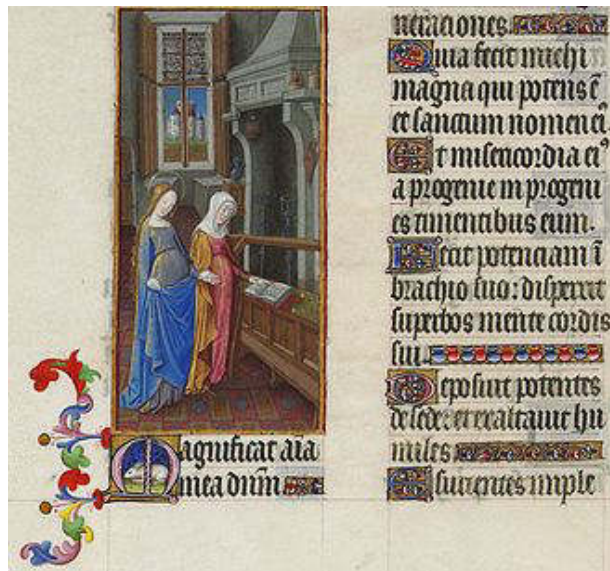 Magnificat aīa
mea dn̄m
neraciones.
Quia fecit michi
magna qui potens ē
et sanctum nomen eiꝰ
Et misericordia eiꝰ
a progenie in progeni
es timentibus eum.
Fecit potenciam ī
brachio suo: dispersit
superbos mente cordis
sui.
Deposuit potentes
de sede: et exaltauit hu
miles
Esurientes imple